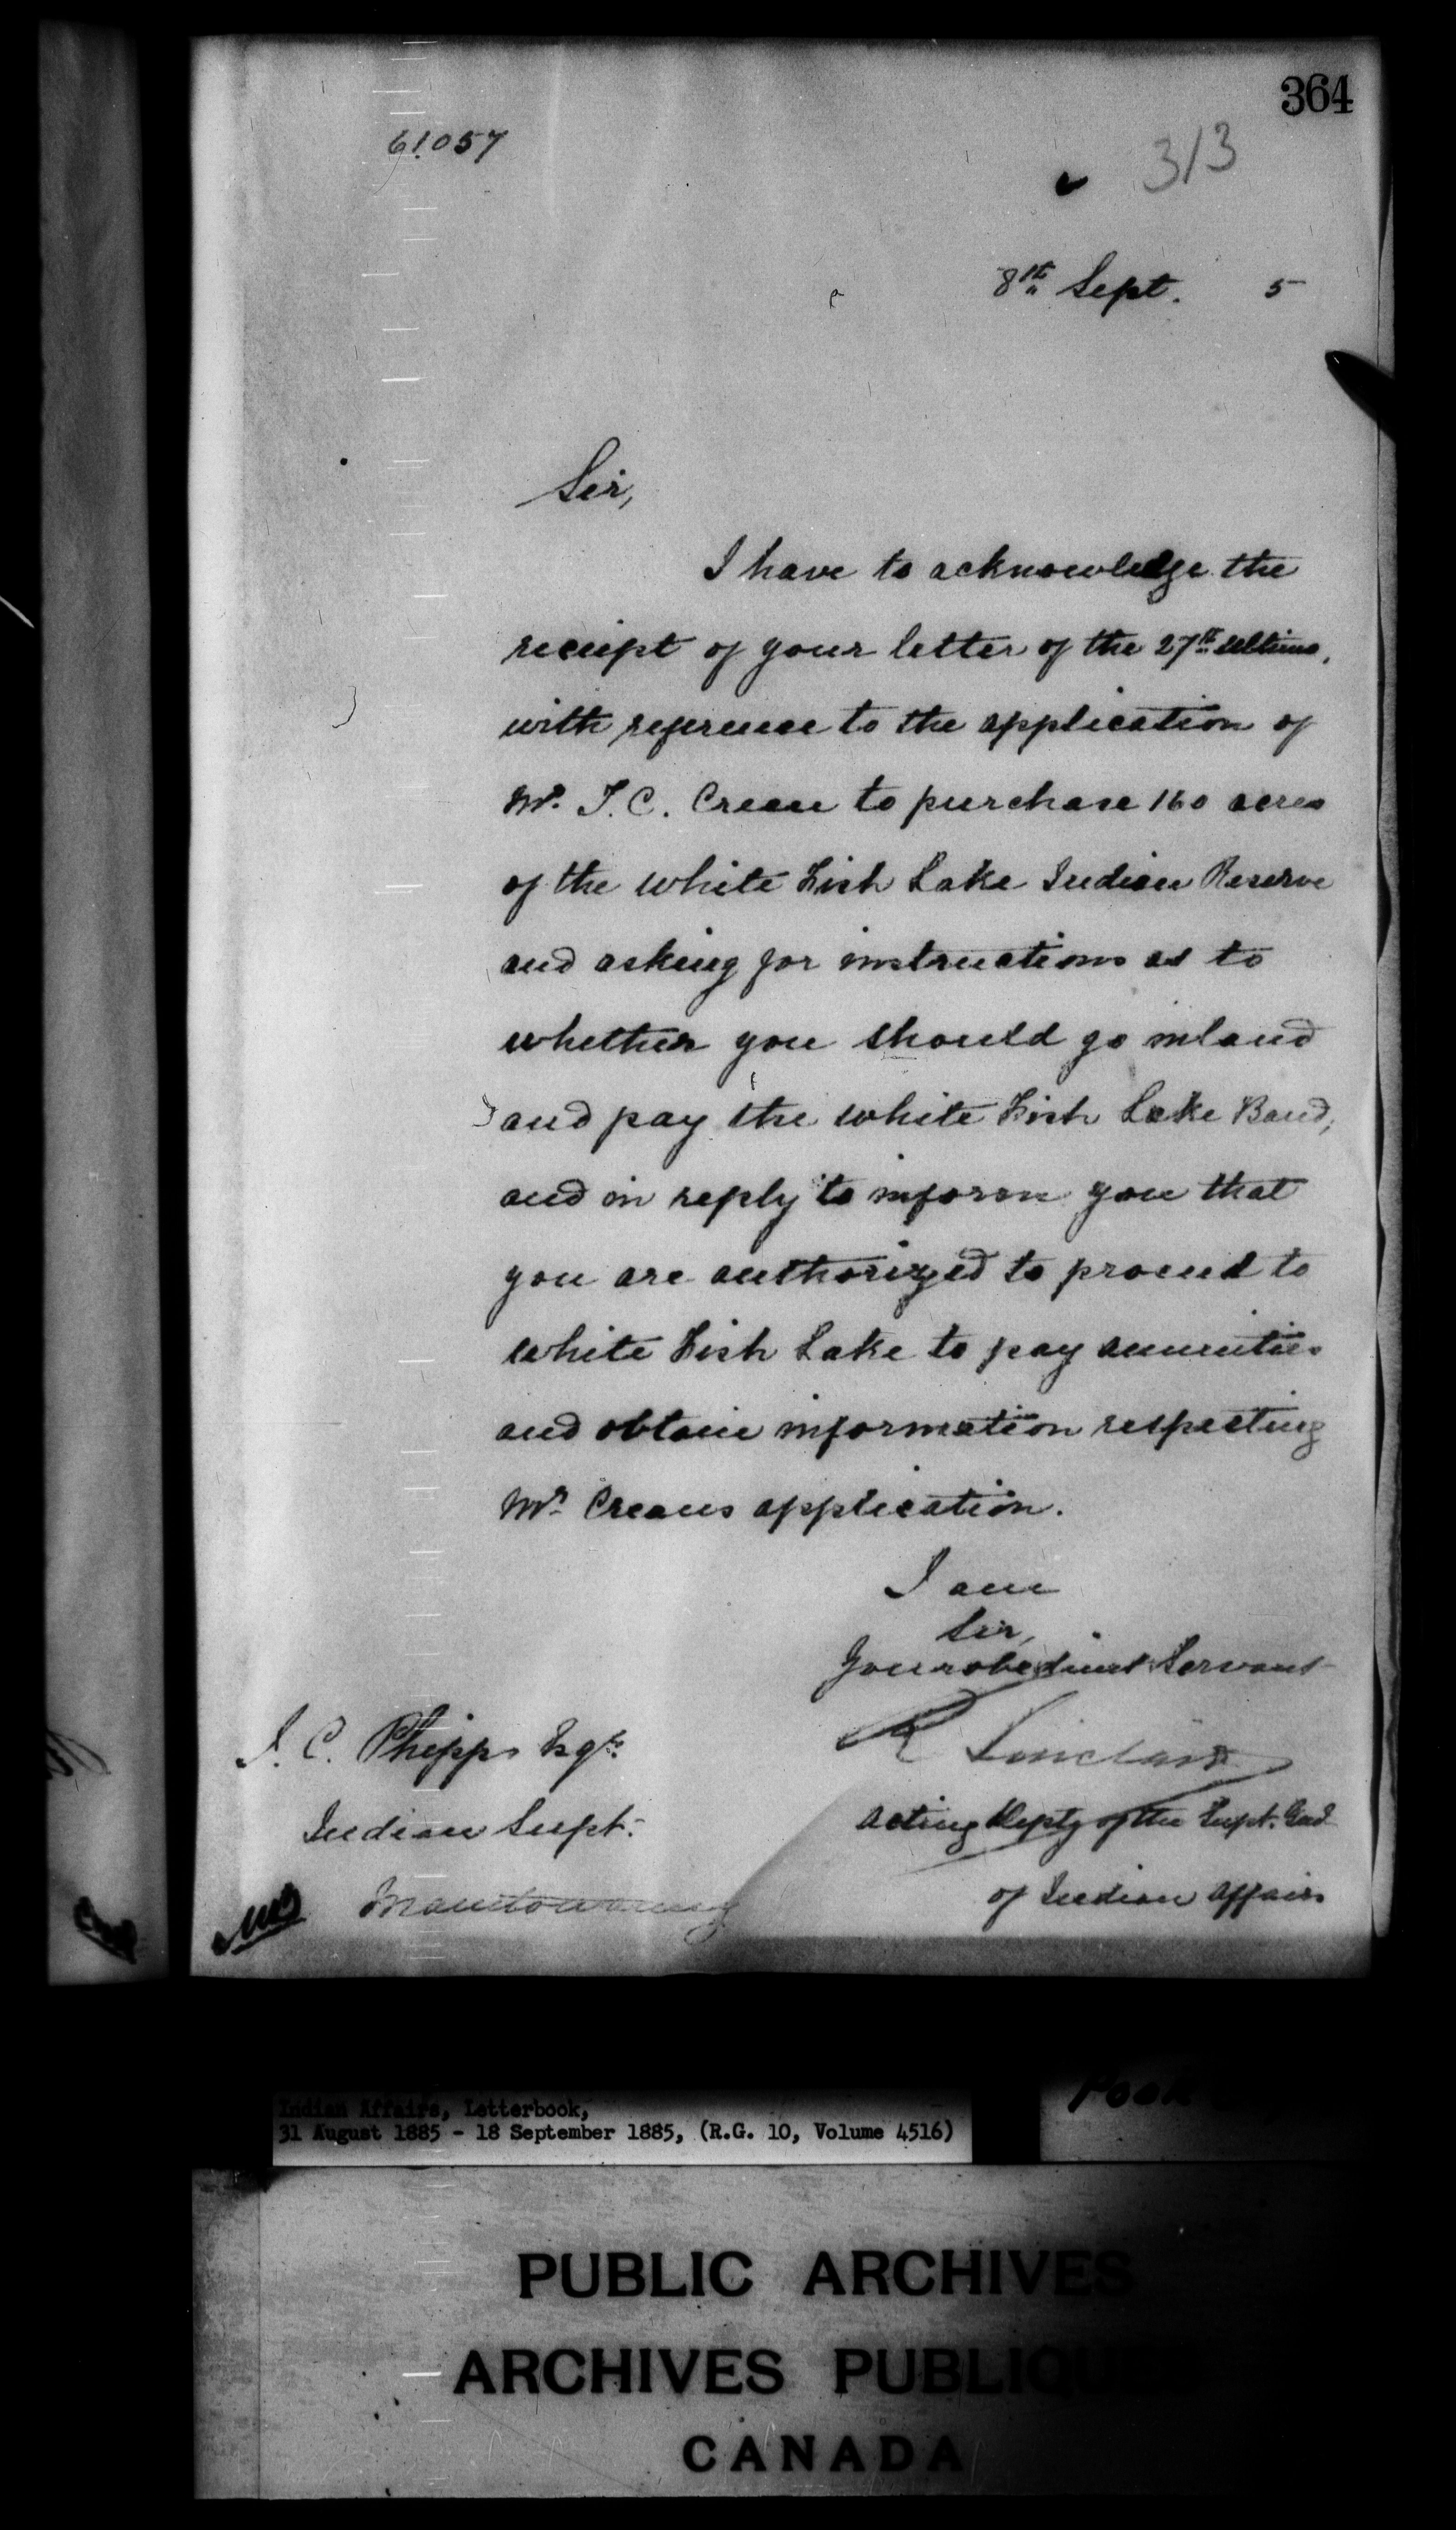 364
61.057
313
8th Sept. 5
Sir,
I have to acknowledge the
receipt of your letter of the 27th ultimo,
with reference to the application of
Mr. T. C. Crean to purchase 160 acres
of the White Fish Lake Indian Reserve
and asking for instructions as to
whether you should go inland
and pay the White Fish Lake Band,
and in reply to inform you that
you are authorized to proceed to
White Fish Lake to pay annuities
and obtain information respecting
Mr. Creans application.
I am
Sir,
Your obedient Servant
R Sinclair
Acting Depty of the Supt. Genl
of Indian Affairs
J. C. Phipps Esqr.
Indian Supt.
Manitowaning
Indian Affairs, Letterbook,
31 August 1885 - 18 September 1885, (R.G. 10, Volume 4516)
PUBLIC ARCHIVES
ARCHIVES PUBLIQUES
CANADA